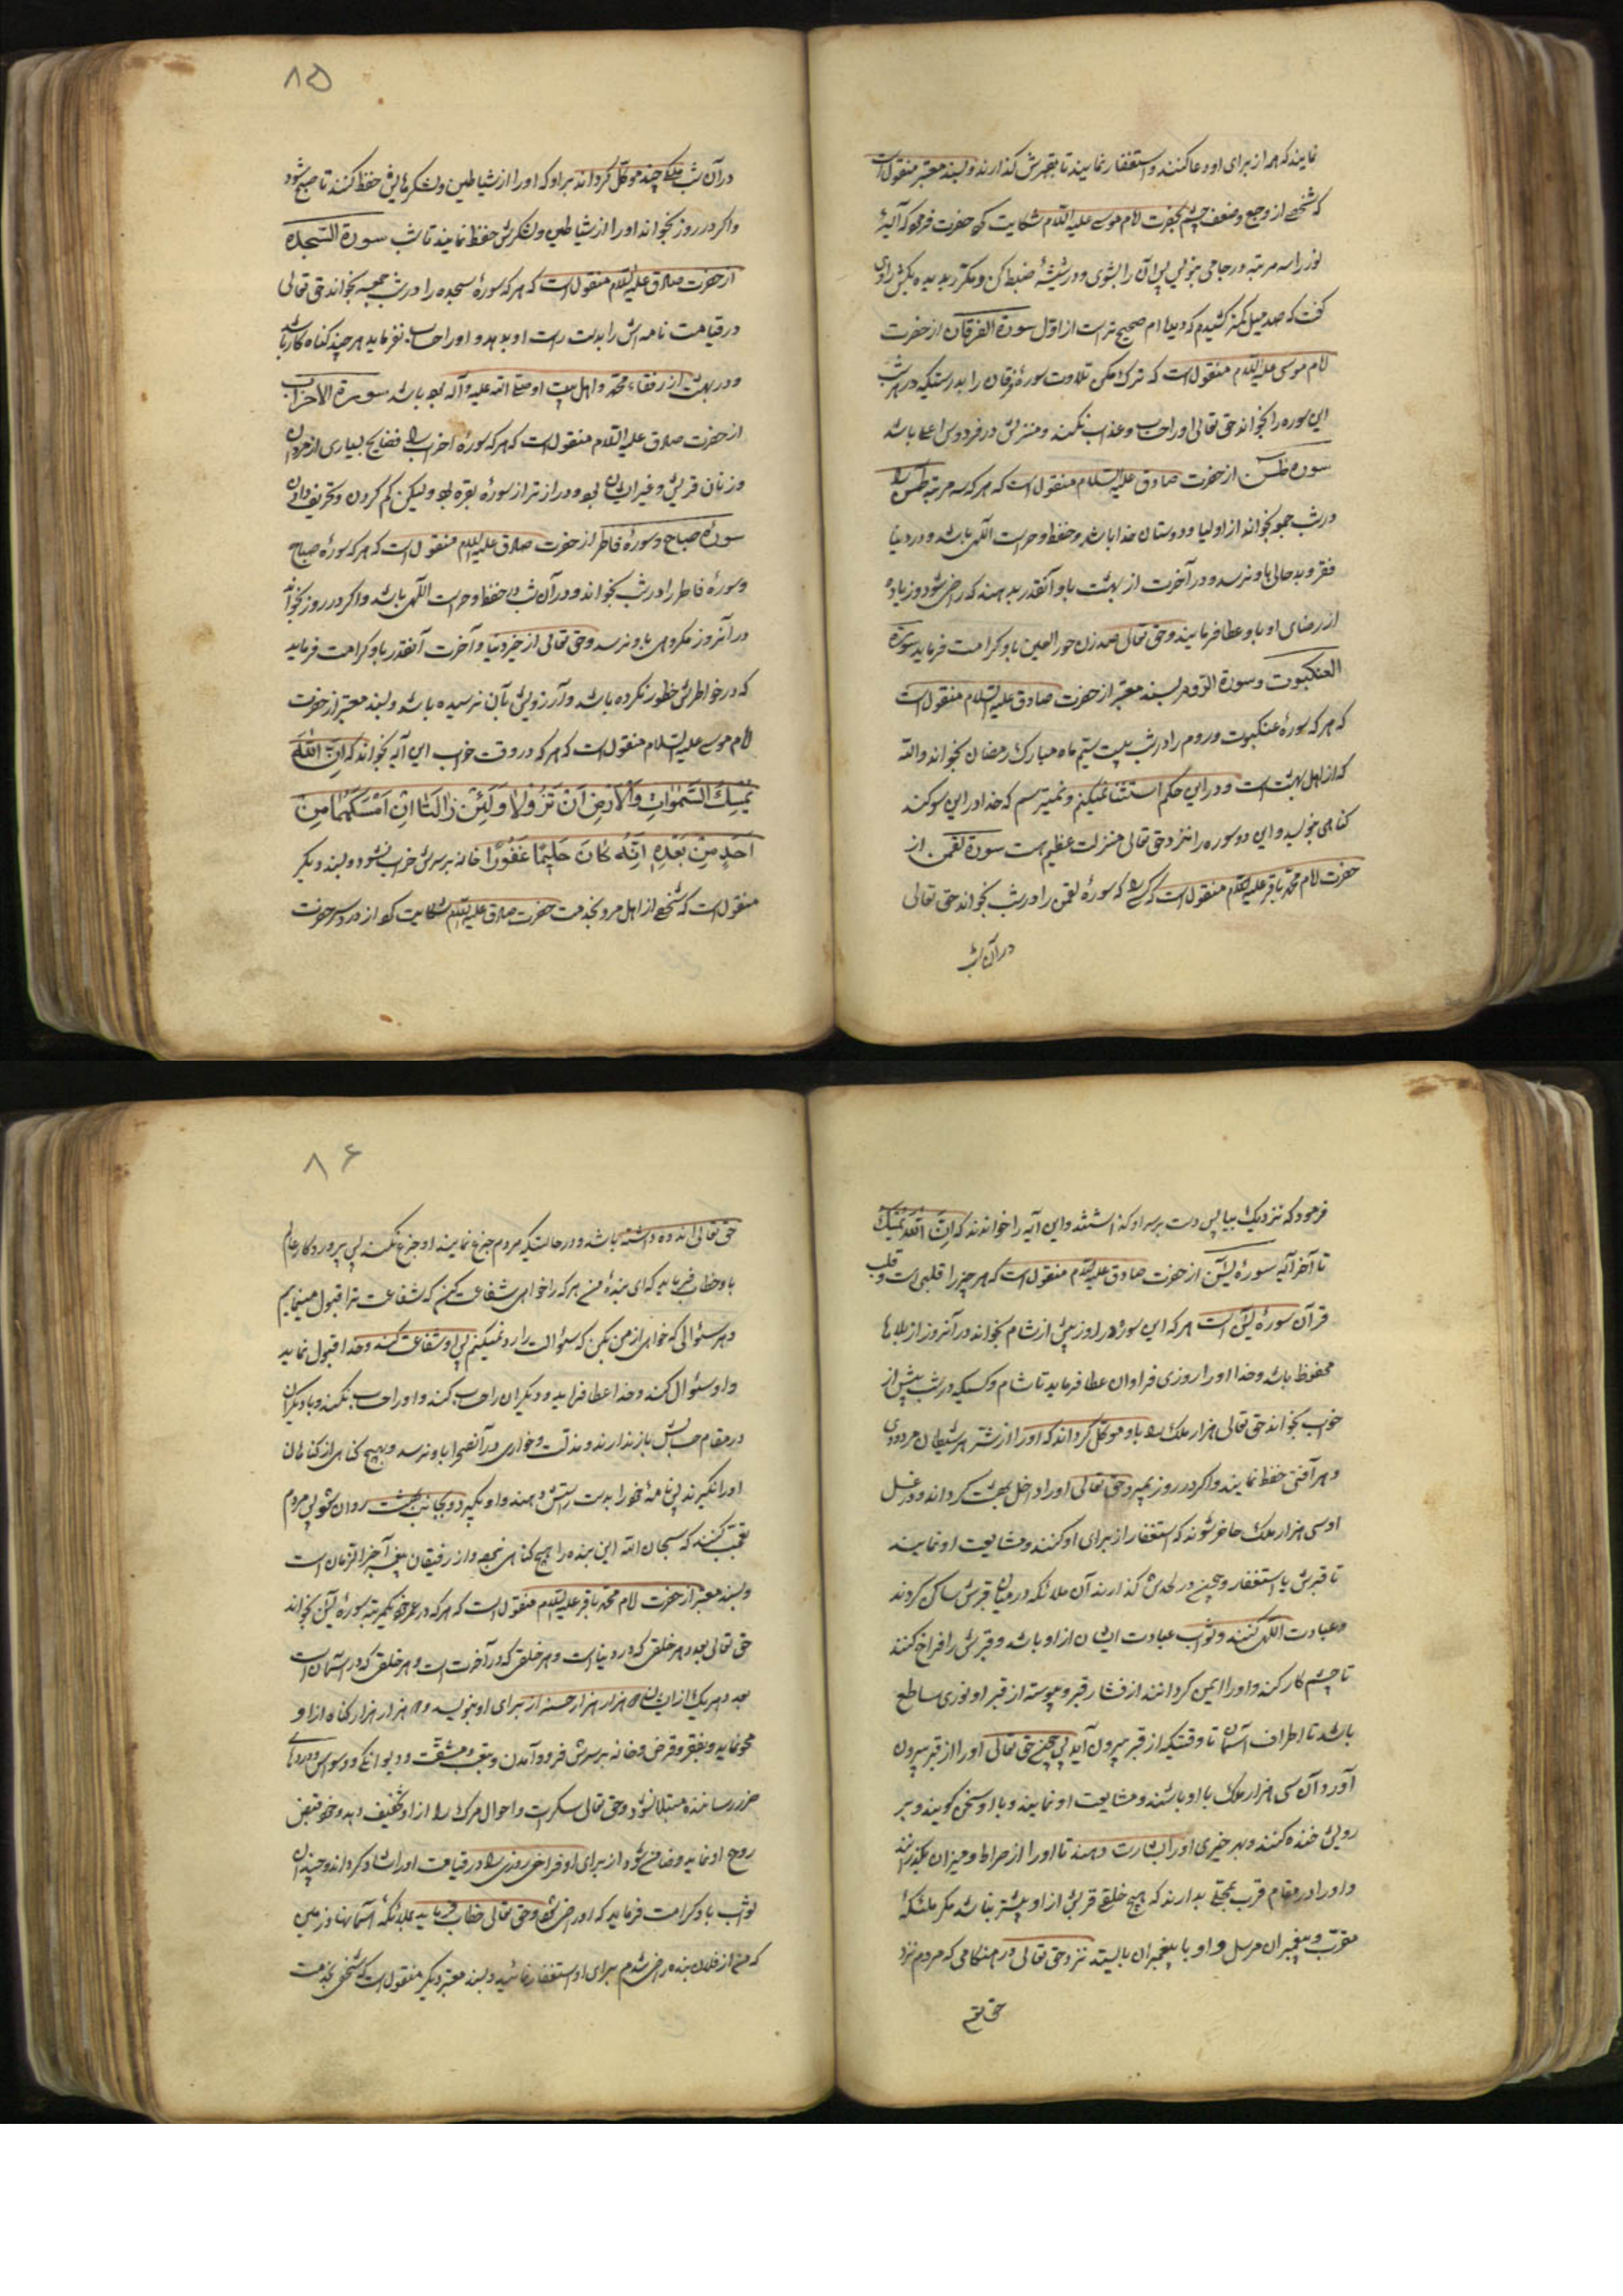 نمایند که هم از برای او دعا کنند و استغفار نمایند تا بقبرش گذارند و بسند معتبر منقولست
که شخصی از وجع و ضعف چشم بحضرت امام موسی علیه السلام شکایت کرد حضرت فرمود که آیهٔ
نور را سه مرتبه در جامی بنویس پس آن را بشوی و در شیشهٔ ضبط کن و مکرر بدیده بکش راوی
گفت که صد میل کمتر کشیدم که دیده‌ام صحیح تر است از اول سورة الفرقان از حضرت
امام موسی علیه السلام منقولست که ترک مکن تلاوت سورهٔ فرقان را بدرستیکه در هر شب
این سوره را بخواند حق تعالی او را حساب و عذاب نکند و منزلش در فردوس اعلی باشد
سوره طس از حضرت صادق علیه السلام منقولست که هر که سه مرتبه طس را
در شب جمعه بخواند از اولیا و دوستان خدا باشد و حفظ و حراست الٓهی باشد و در دنیا
فقر و بدحالی باو نرسد و در آخرت از بهشت باو آنقدر بدهند که راضی شود و زیاده
از رضای او باو عطا فرمایند و حق تعالی صد زن حور العین باو کرامت فرماید سورة
العنکبوت و سورة الروم بسند معتبر از حضرت صادق علیه السلام منقولست
که هر که سورهٔ عنکبوت و روم را در شب بیست سیم ماه مبارک رمضان بخواند والله
که از اهل بهشت است و در این حکم استثنا نمیکنم و نمیترسم که خدا در این سوگند
گناهی بنویسد و این دو سوره را نزد حق تعالی منزلت عظیم هست سورة لقمن از
حضرت امام محمد باقر علیه السلام منقولست که کسی که سورهٔ لقمن را در شب بخواند حق تعالی
در آن شب
۸۵
در آن شب ملکی چند موکل گرداند بر او که او را از شیاطین و لشکرهایش حفظ کنند تا صبح شود
و اگر در روز بخواند او را از شیاطین و لشکرش حفظ نمایند تا شب سورة السجده
از حضرت صادق علیه السلام منقولست که هر که سورهٔ سجده را در شب جمعه بخواند حق تعالی
در قیامت نامه اش را بدست راست او بدهد و او را حساب نفرماید هر چند گناه کار باشد
و در بهشت از رفقاء محمد و اهل بیت او صلی الله علیه و آله بوده باشد سورة الاحزاب
از حضرت صادق علیه السلام منقولست که هر که سورهٔ احزاب را فضایح بسیاری از مردان
و زنان قریش و غیر ایشان بود و دراز تر از سورهٔ بقره بود ولیکن کم کردن و تحریف دادن
سورهٔ صباح و سورهٔ فاطر از حضرت صادق علیه السلام منقولست که هر که سورهٔ صباح
و سورهٔ فاطر را در شب بخواند و در آن شب در حفظ و حراست الٓهی باشد و اگر در روز بخواند
در آنروز مکروهی باو نرسد و حق تعالی از خیر دنیا و آخرت آنقدر باو کرامت فرماید
که در خواطرش خطور نکرده باشد و آرزویش بآن نرسیده باشد و بسند معتبر از حضرت
امام موسی علیه السلام منقولست که هر که در وقت خواب این آیه بخواند که اِنَّ اللّٰهَ
یُمْسِكُ السَّمٰوَاتِ وَالْاَرْضَ اَنْ تَزُولَا وَلَئِنْ زَالَتَا اِنْ اَمْسَكَهُمَا مِنْ
اَحَدٍ مِنْ بَعْدِهِ اِنَّهُ كَانَ حَلِیْمًا غَفُوْرًا خانه بر سرش خراب نشود و بسند دیگر
منقولست که شخصی از اهل مرو بخدمت حضرت صادق علیه السلام شکایت کرد از درد سر حضرت
فرمود که نزدیک بیا پس دست بر سر او گذاشتند و این آیه را خواندند که اِنَّ اللّٰهَ یُمْسِكُ
تا آخر آیه سورهٔ یٰسٓ از حضرت صادق علیه السلام منقولست که هر چیز را قلبی است و قلب
قرآن سورهٔ یٰسٓ است هر که این سوره را در روز پیش از شام بخواند در آنروز از بلاها
محفوظ باشد و خدا او را روزی فراوان عطا فرماید تا شام و کسیکه در شب پیش از
خواب بخواند حق تعالی هزار ملک را باو موکل گرداند که او را از شر هر شیطان مردودی
و هر آفتی حفظ نمایند و اگر در روز بمیرد حق تعالی او را داخل بهشت گرداند و در غسل
او سی هزار ملک حاضر شوند که استغفار از برای او کنند و مشایعت او نمایند
تا قبرش با استغفار و چون در لحدش گذارند آن ملائکه در میان قبرش ساکن گردند
و عبادت الٓهی کنند و ثواب عبادت ایشان از او باشد و قبرش را فراخ کنند
تا چشم کار کند و او را ایمن گردانند از فشار قبر و پیوسته از قبر او نوری ساطع
باشد تا اطراف آسمان تا وقتیکه از قبر بیرون آید پس چون حق تعالی او را از قبر بیرون
آورد آن سی هزار ملک با او باشند و مشایعت او نمایند و با او سخن گویند و بر
رویش خنده کنند و بهر خیری او را بشارت دهند تا او را از صراط و میزان بگذرانند
و او را در مقام قرب بحقی بدارند که هیچ خلقی قربش از او بیشتر نباشد مگر ملئکهٔ
مقرب و پیغمبران مرسل و او با پیغمبران بایستد نزد حق تعالی در هنگامی که مردم نزد
حق تع
۸۶
حق تعالی اندوه داشته باشد و در حالتیکه مردم جزع نمایند او جزع نکند پس پروردگار عالم
باو خطاب فرماید که ای بندهٔ من هر که را خواهی شفاعت کن که شفاعت ترا قبول مینمایم
و هر سئوالی که خواهی از من بکن که سئوالت را رد نمیکنم پس او شفاعت کند و خدا قبول نماید
و او سئوال کند و خدا عطا فرماید و دیگران را حساب کند و او را حساب نکند و با دیگران
در مقام حسابش باز ندارند و مذلت و خواری در آنصحرا باو نرسد و بهیچ گناهی از گناهان
او را نگیرند پس نامهٔ خود را بدست راستش دهند و او بگیرد و بجانب بهشت روان شود پس مردم
تعجب کنند که سبحان الله این بنده را هیچ گناهی نبود و از رفیقان پیغمبر آخر الزمان است
و بسند معتبر از حضرت امام محمد باقر علیه السلام منقولست که هر که در عمر خود یکمرتبه سورهٔ یٰسٓ بخواند
حق تعالی بعدد هر خلقی که در دنیاست و هر خلقی که در آخرت است و هر خلقی که در آسمان است
بعدد هر یک از ایشان دو هزار هزار حسنه از برای او بنویسد و دو هزار هزار گناه از او
محو نماید و بفقر و قرض و خانه بر سرش فرود آمدن و بتعب و مشقت و دیوانگی و وسواس و دردهای
ضرر رساننده مبتلا نشود و حق تعالی سکرات و احوال مرگ را از او تخفیف دهد و خود قبض
روح او نماید و ضامن شود از برای او فراخی روزی را و در قیامت او را شاد گرداند و چندان
ثواب باو کرامت فرماید که او راضی شود و حق تعالی خطاب فرماید بملائکهٔ آسمانها و زمین
که من از فلان بنده راضی شدم برای او استغفار نمائید و بسند معتبر دیگر منقولست که شخصی بخدمت